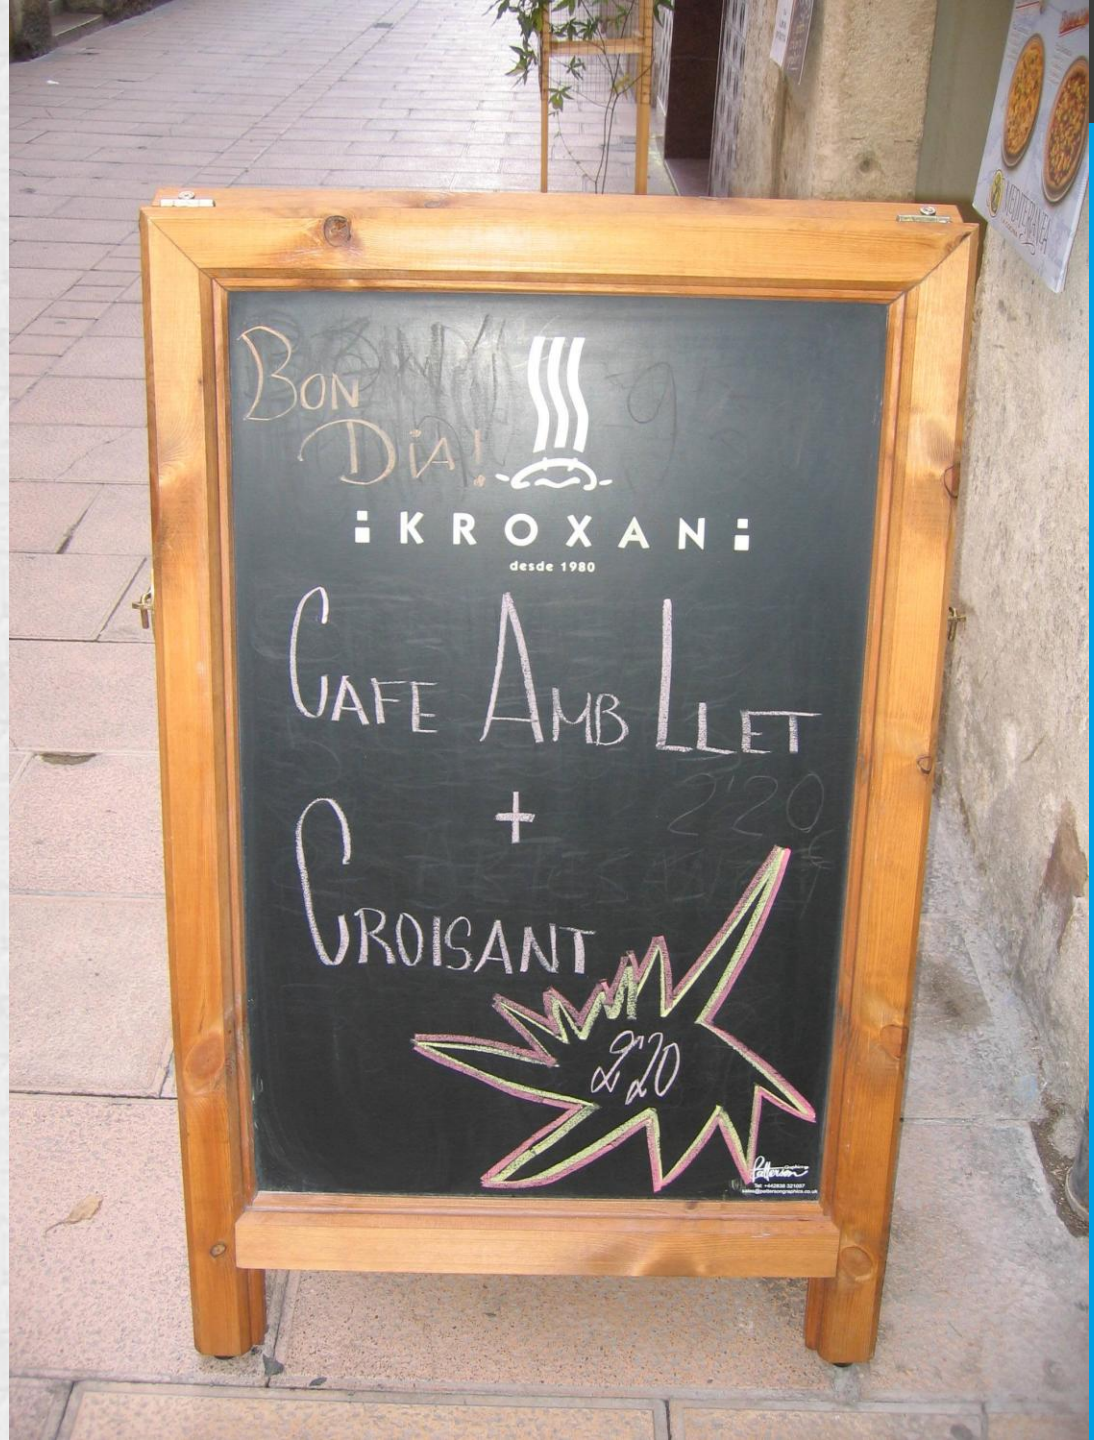 BON
DIA!
KROXAN
desde 1980
CAFE AMB LLET
2'20
+
CROISANT
2'20
Patterson